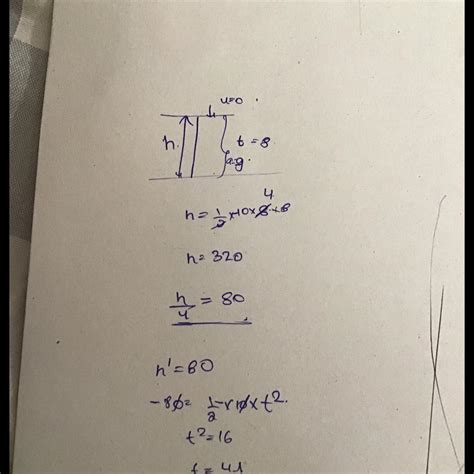 u=0
h
t=8
a=g
h=1/2×10×8×8
4
h=320
h/4=80
h'=80
-80=1/2-×10×t²
t²=16
t=4s